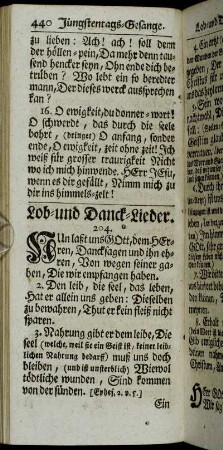 440 Jüngstentags-Gesänge.
zu lieben: Ach! ach! soll denn
der höllen-pein, Da mehr denn tau-
send hencker seyn, Ohn ende dich be-
trüben? Wo lebt ein so beredter
mann, Der dieses werck aussprechen
kan?
16. O ewigkeit, du donner-wort!
O schwerdt, das durch die seele
bohrt, (dringet) O anfang, sonder
ende, O ewigkeit, zeit ohne zeit! Ich
weiß für grosser traurigkeit Nicht
wo ich mich hinwende. HErr JEsu,
wenn es dir gefällt, Nimm mich zu
dir ins himmels-zelt!
Lob-und Danck-Lieder.
204.
NUn laßt uns GOtt, dem HEr-
ren, Dancksagen und ihn eh-
ren, Von wegen seiner ga-
ben, Die wir empfangen haben.
2. Den leib, die seel, das leben,
Hat er allein uns geben: Dieselben
zu bewahren, Thut er kein fleiß nicht
sparen.
3. Nahrung gibt er dem leibe, Die
seel (welche, weil sie ein Geist ist, keiner leib-
lichen Nahrung bedarff) muß uns doch
bleiben, (und ist unsterblich) Wiewol
tödtliche wunden, Sind kommen
von der sünden. [Ephes. 2. v. 5.]
Ein